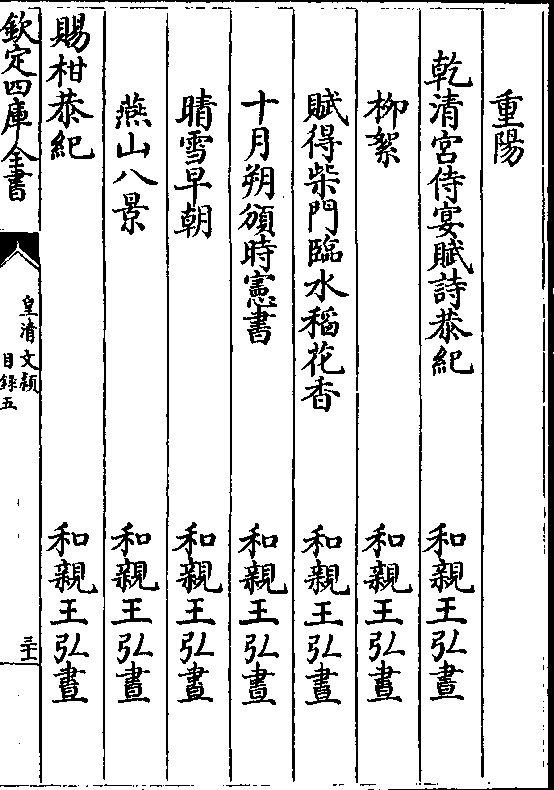 重陽
乾清宮侍宴賦詩恭紀 和親王弘晝
柳絮 和親王弘晝
賦得柴門臨水稻花香 和親王弘晝
十月朔頒時憲書 和親王弘晝
晴雪早朝 和親王弘晝
燕山八景 和親王弘晝
賜柑恭紀 和親王弘晝
欽定四庫全書
皇清文穎
目錄五